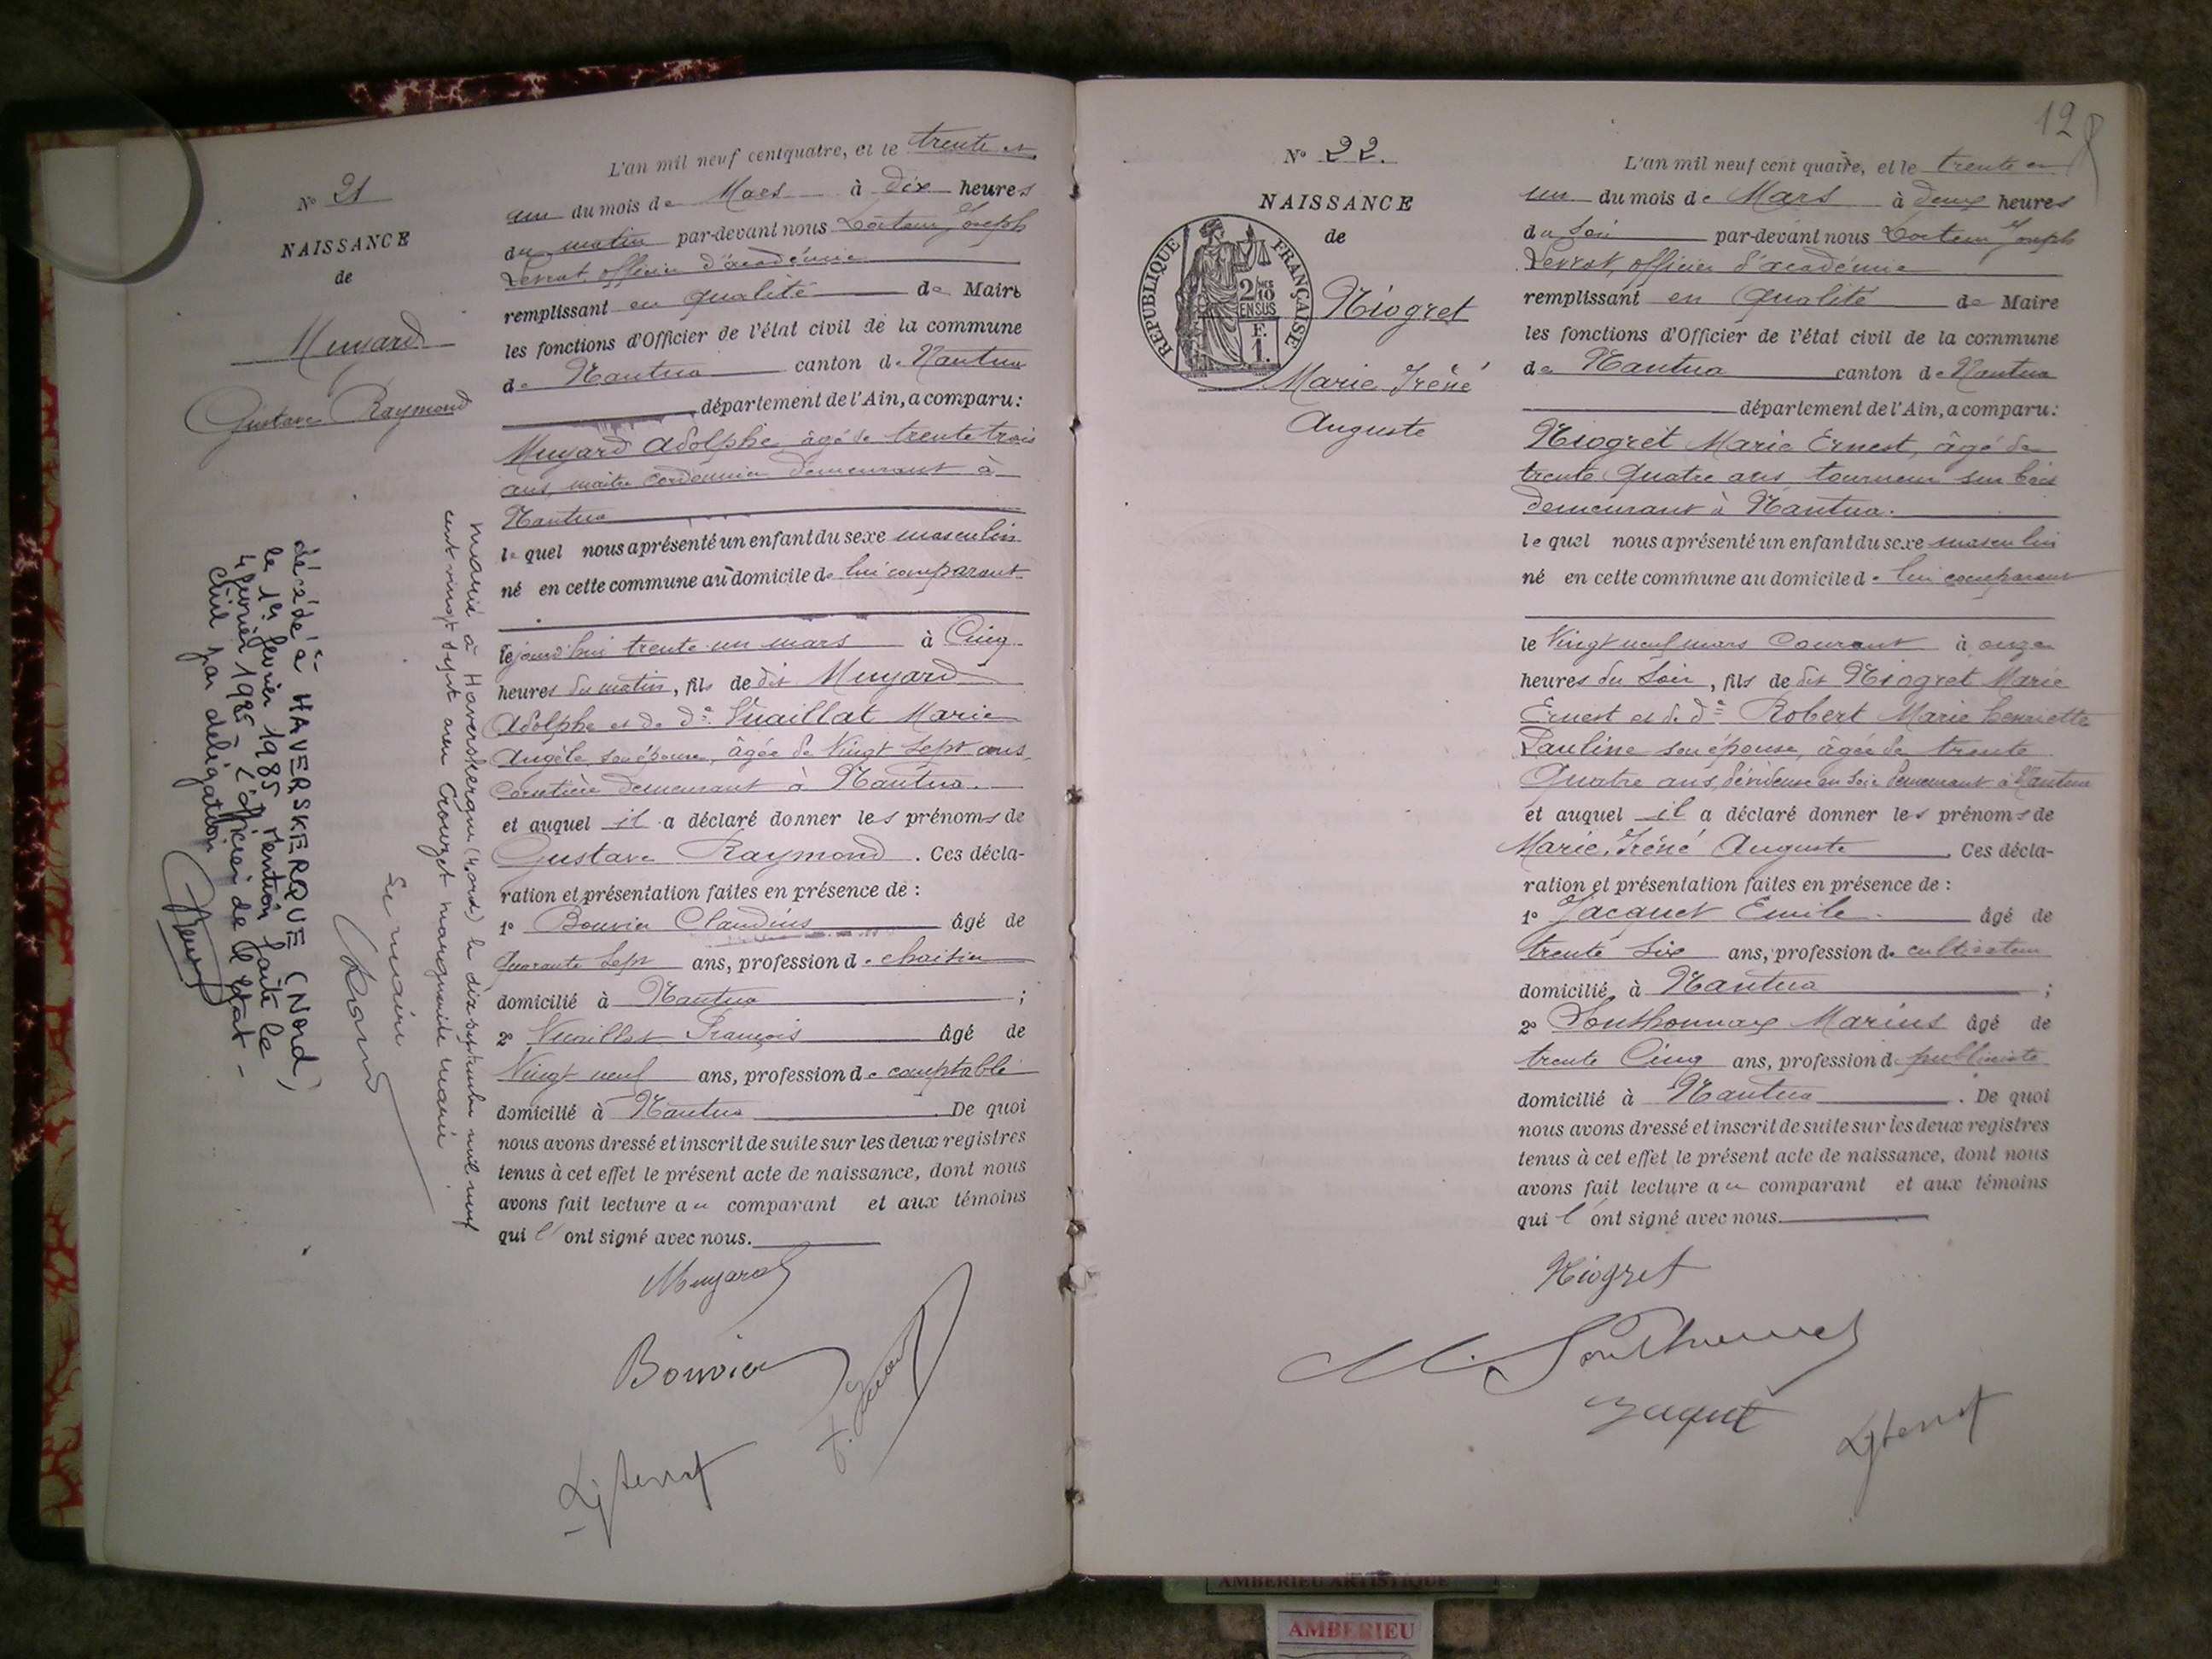 N° 21
NAISSANCE
de
Muyard
Gustave Raymond
L'an mil neuf cent quatre, et le trente et
un du mois de Mars à dix heures
du matin par-devant nous Lortem Joseph
officier d'académie
remplissant en qualité de Maire
les fonctions d'Officier de l'état civil de la commune
de Nantua canton de Nantua
département de l'Ain, a comparu:
Muyard Adolphe âgé de trente trois
ans, maître cordonnier demeurant à
Nantua
lequel nous a présenté un enfant du sexe masculin
né en cette commune au domicile de lui comparant
jourd'hui trente un mars à Cinq
heures du matin, fils de dit Muyard
Adolphe et de de Vuaillat Marie
Angèle, son épouse, âgée de Vingt sept ans,
demeurant à Nantua.
et auquel il a déclaré donner les prénoms de
Gustave Raymond. Ces décla-
ration et présentation faites en présence de :
1° Bouvier Claudius âgé de
Quarante Sept ans, profession de
domicilié à Nantua ;
2° Vuaillat François âgé de
Vingt neuf ans, profession de comptable
domicilié à Nantua. De quoi
nous avons dressé et inscrit de suite sur les deux registres
tenus à cet effet le présent acte de naissance, dont nous
avons fait lecture au comparant et aux témoins
qui l'ont signé avec nous.
Muyard
Bouvier
marié à Haverskerque (Nord) le dix septembre mil neuf
cent vingt sept avec Crouzet marguerite marie.
Le maire
décédé à HAVERSKERQUE (Nord)
le 1er février 1985 mention faite le
4 février 1985 L'officier de l'Etat-
Civil par délégation
12
N° 22.
NAISSANCE
de
REPUBLIQUE FRANÇAISE
2/10 EN SUS
F.
1.
Niogret
Marie Iréné
Auguste
L'an mil neuf cent quatre, et le trente et
un du mois de Mars à deux heures
du soir par-devant nous Joseph
officier d'académie
remplissant en qualité de Maire
les fonctions d'Officier de l'état civil de la commune
de Nantua canton de Nantua
département de l'Ain, a comparu:
Niogret Marie Ernest, âgé de
trente quatre ans tourneur sur bois
demeurant à Nantua.
lequel nous a présenté un enfant du sexe masculin
né en cette commune au domicile de lui comparant
le Vingt neuf mars Courant à onze
heures du Soir, fils de dit Niogret Marie
Ernest et de de Robert Marie henriette
Pauline son épouse, âgée de trente
Quatre ans, dévideuse en soie demeurant à Nantua
et auquel il a déclaré donner les prénoms de
Marie, Iréné Auguste. Ces décla-
ration et présentation faites en présence de :
1° Jacquet Emile âgé de
trente Six ans, profession de cultivateur
domicilié à Nantua ;
2° Sonthonnax Marius âgé de
trente Cinq ans, profession de publiciste
domicilié à Nantua. De quoi
nous avons dressé et inscrit de suite sur les deux registres
tenus à cet effet le présent acte de naissance, dont nous
avons fait lecture au comparant et aux témoins
qui l'ont signé avec nous.
Niogret
M. Sonthonnax
Jaquet
AMBERIEU ARTISTIQUE
AMBERIEU